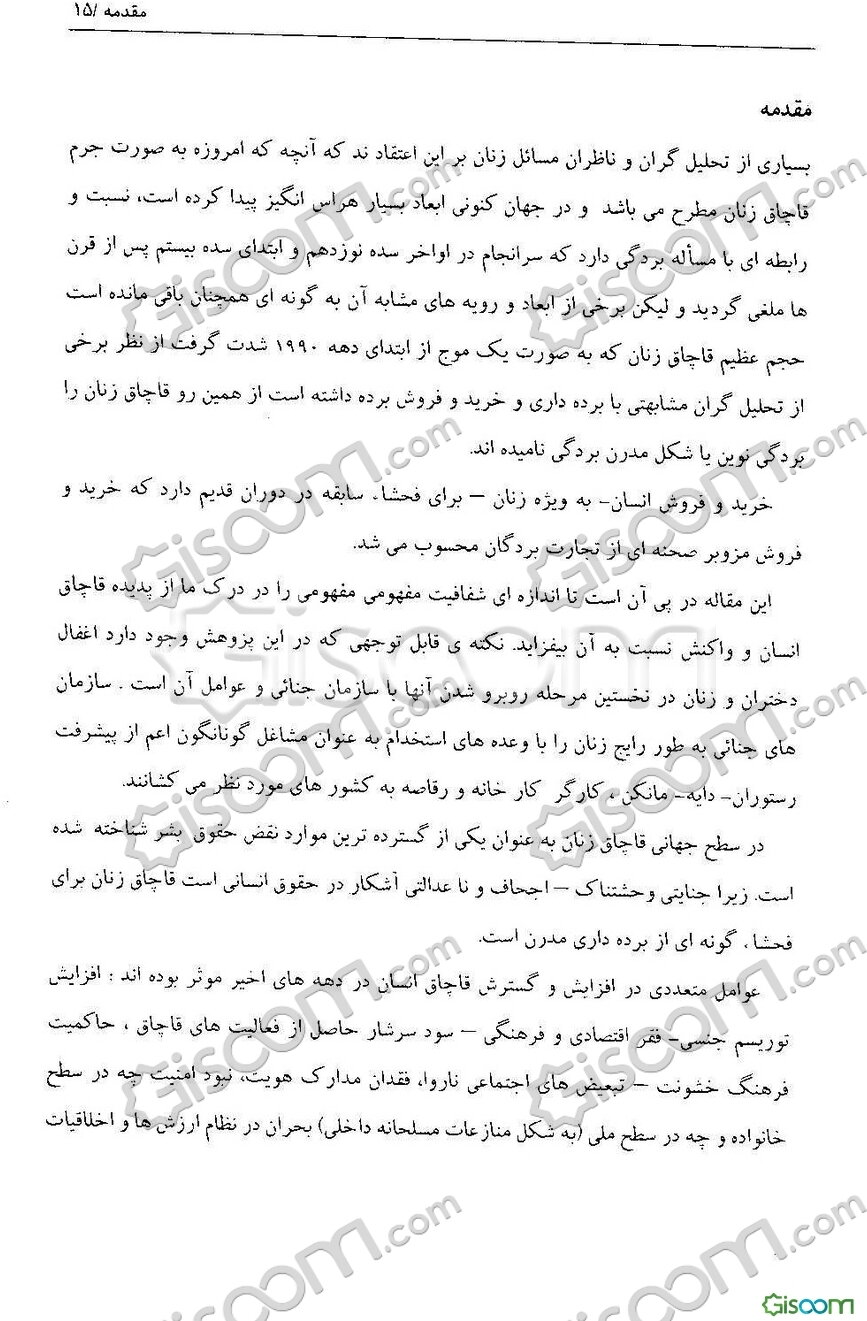 مقدمه /۱۵
مقدمه
بسیاری از تحلیل گران و ناظران مسائل زنان بر این اعتقاد ند که آنچه که امروزه به صورت جرم
قاچاق زنان مطرح می باشد و در جهان کنونی ابعاد بسیار هراس انگیز پیدا کرده است، نسبت و
رابطه ای با مسأله بردگی دارد که سرانجام در اواخر سده نوزدهم و ابتدای سده بیستم پس از قرن
ها ملغی گردید و لیکن برخی از ابعاد و رویه های مشابه آن به گونه ای همچنان باقی مانده است
حجم عظیم قاچاق زنان که به صورت یک موج از ابتدای دهه ۱۹۹۰ شدت گرفت از نظر برخی
از تحلیل گران مشابهتی با برده داری و خرید و فروش برده داشته است از همین رو قاچاق زنان را
بردگی نوین یا شکل مدرن بردگی نامیده اند.
خرید و فروش انسان- به ویژه زنان – برای فحشاء سابقه در دوران قدیم دارد که خرید و
فروش مزوبر صحنه ای از تجارت بردگان محسوب می شد.
این مقاله در پی آن است تا اندازه ای شفافیت مفهومی مفهومی را در درک ما از پدیده قاچاق
انسان و واکنش نسبت به آن بیفزاید. نکته ی قابل توجهی که در این پزوهش وجود دارد اغفال
دختران و زنان در نخستین مرحله روبرو شدن آنها با سازمان جنائی و عوامل آن است . سازمان
های جنائی به طور رایج زنان را با وعده های استخدام به عنوان مشاغل گونانگون اعم از پیشرفت
رستوران- دایه- مانکن ، کارگر کار خانه و رقاصه به کشور های مورد نظر می کشانند.
در سطح جهانی قاچاق زنان به عنوان یکی از گسترده ترین موارد نقض حقوق بشر شناخته شده
است. زیرا جنایتی وحشتناک – اجحاف و نا عدالتی آشکار در حقوق انسانی است قاچاق زنان برای
فحشاء گونه ای از برده داری مدرن است.
عوامل متعددی در افزایش و گسترش قاچاق انسان در دهه های اخیر موثر بوده اند : افزایش
توریسم جنسی- فقر اقتصادی و فرهنگی – سود سرشار حاصل از فعالیت های قاچاق ، حاکمیت
فرهنگ خشونت – تبعیض های اجتماعی ناروا، فقدان مدارک هویت، نبود امنیت چه در سطح
خانواده و چه در سطح ملی (به شکل منازعات مسلحانه داخلی) بحران در نظام ارزش ها و اخلاقیات
Gisoom